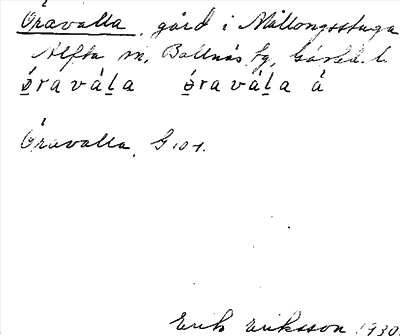 Öravalla, gård i Mållongsstuga
Alfta sn, Bollnäs tg, Gävleb. l.
ǿravála ǿravála á
Öravalla, G 101.
Erik Eriksson 1930.